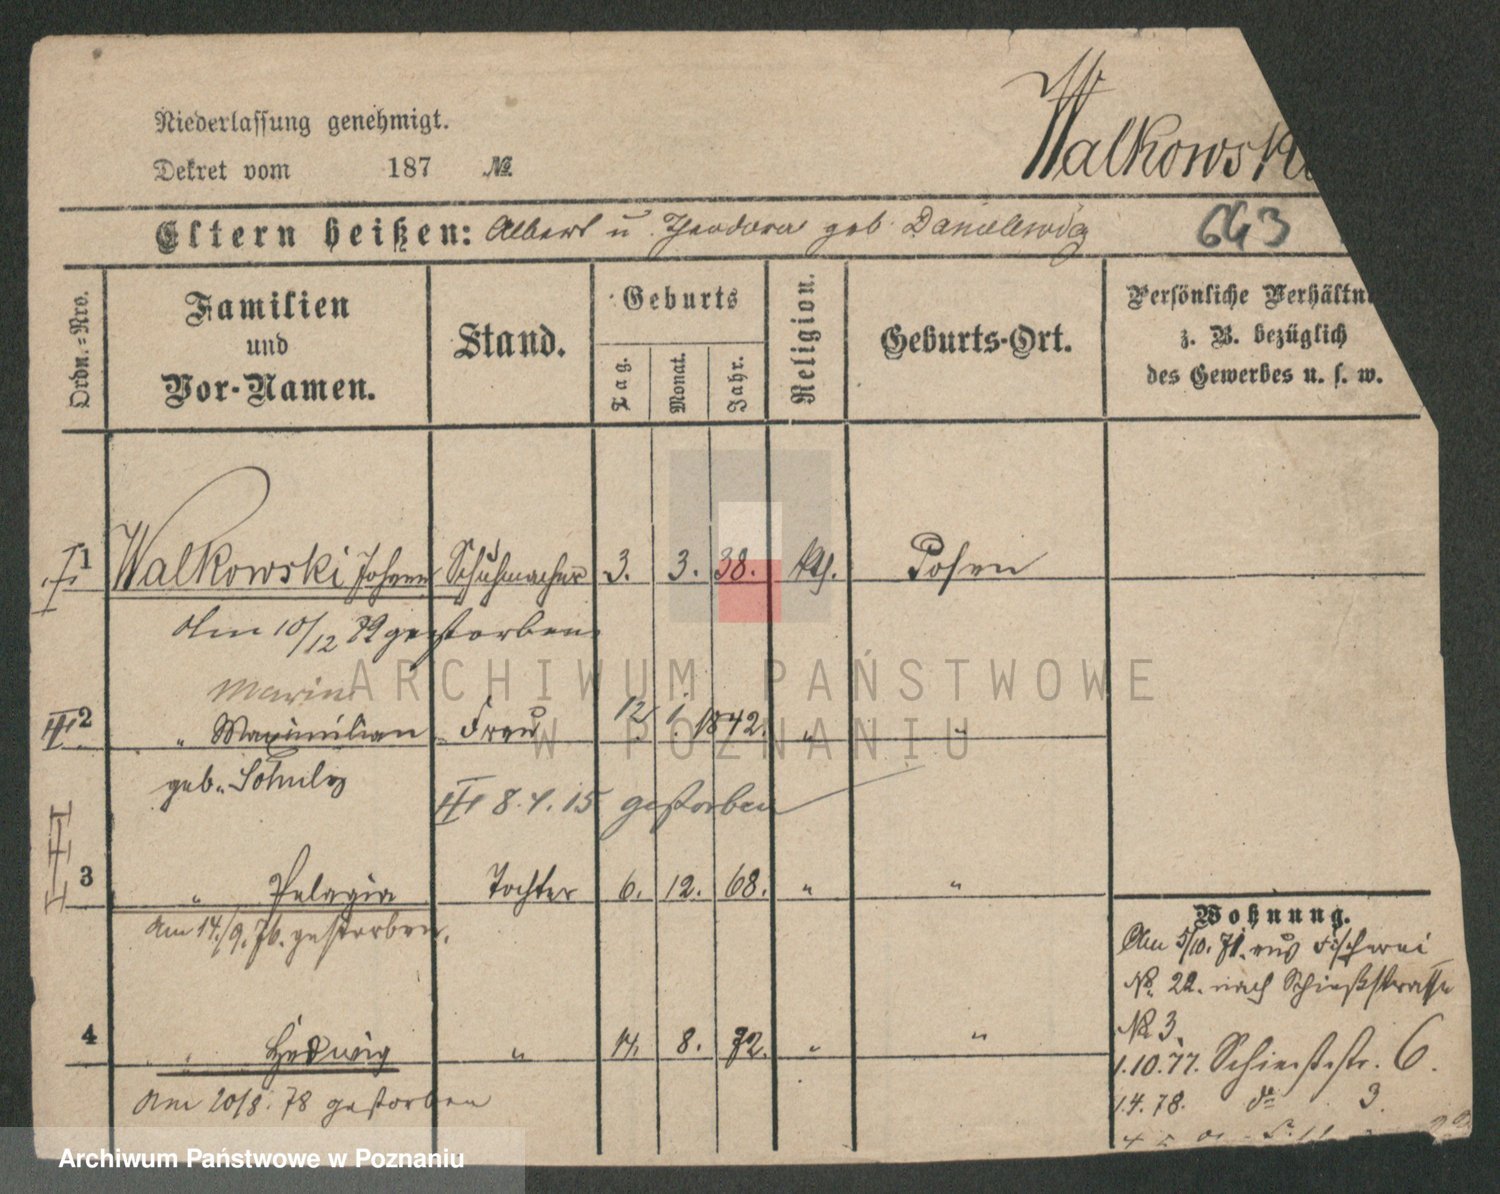 Niederlassung genehmigt.
Walkowski
Dekret vom 187 №.
Eltern heißen: Albert u. Theodora geb. Danielewicz 643
Ordn.=Nro.
Familien und Vor-Namen.
Stand.
Geburts
Tag. Monat. Jahr.
Religion.
Geburts-Ort.
Persönliche Verhältn
z. B. bezüglich
des Gewerbes u. s. w.
1 Walkowski Johann Schuhmacher 3. 3. 38. kth. Posen
Am 10/12 79 gestorben
Maria
2 " Maximilian Frau 12 1. 1842. " "
geb. Schulz
8.4.15 gestorben
3 " Pelagia Tochter 6. 12. 68. " "
Am 14./9. 76. gestorben.
4 " Hedwig " 14. 8. 72. " "
Am 20/8. 78 gestorben
Wohnung.
Am 5/10. 71. aus Fischerei
No. 22. nach Schießstrasse
No 3.
1.10.77. Schiessstr. 6.
1.4.78. do 3.
ARCHIWUM PAŃSTWOWE
W POZNANIU
Archiwum Państwowe w Poznaniu